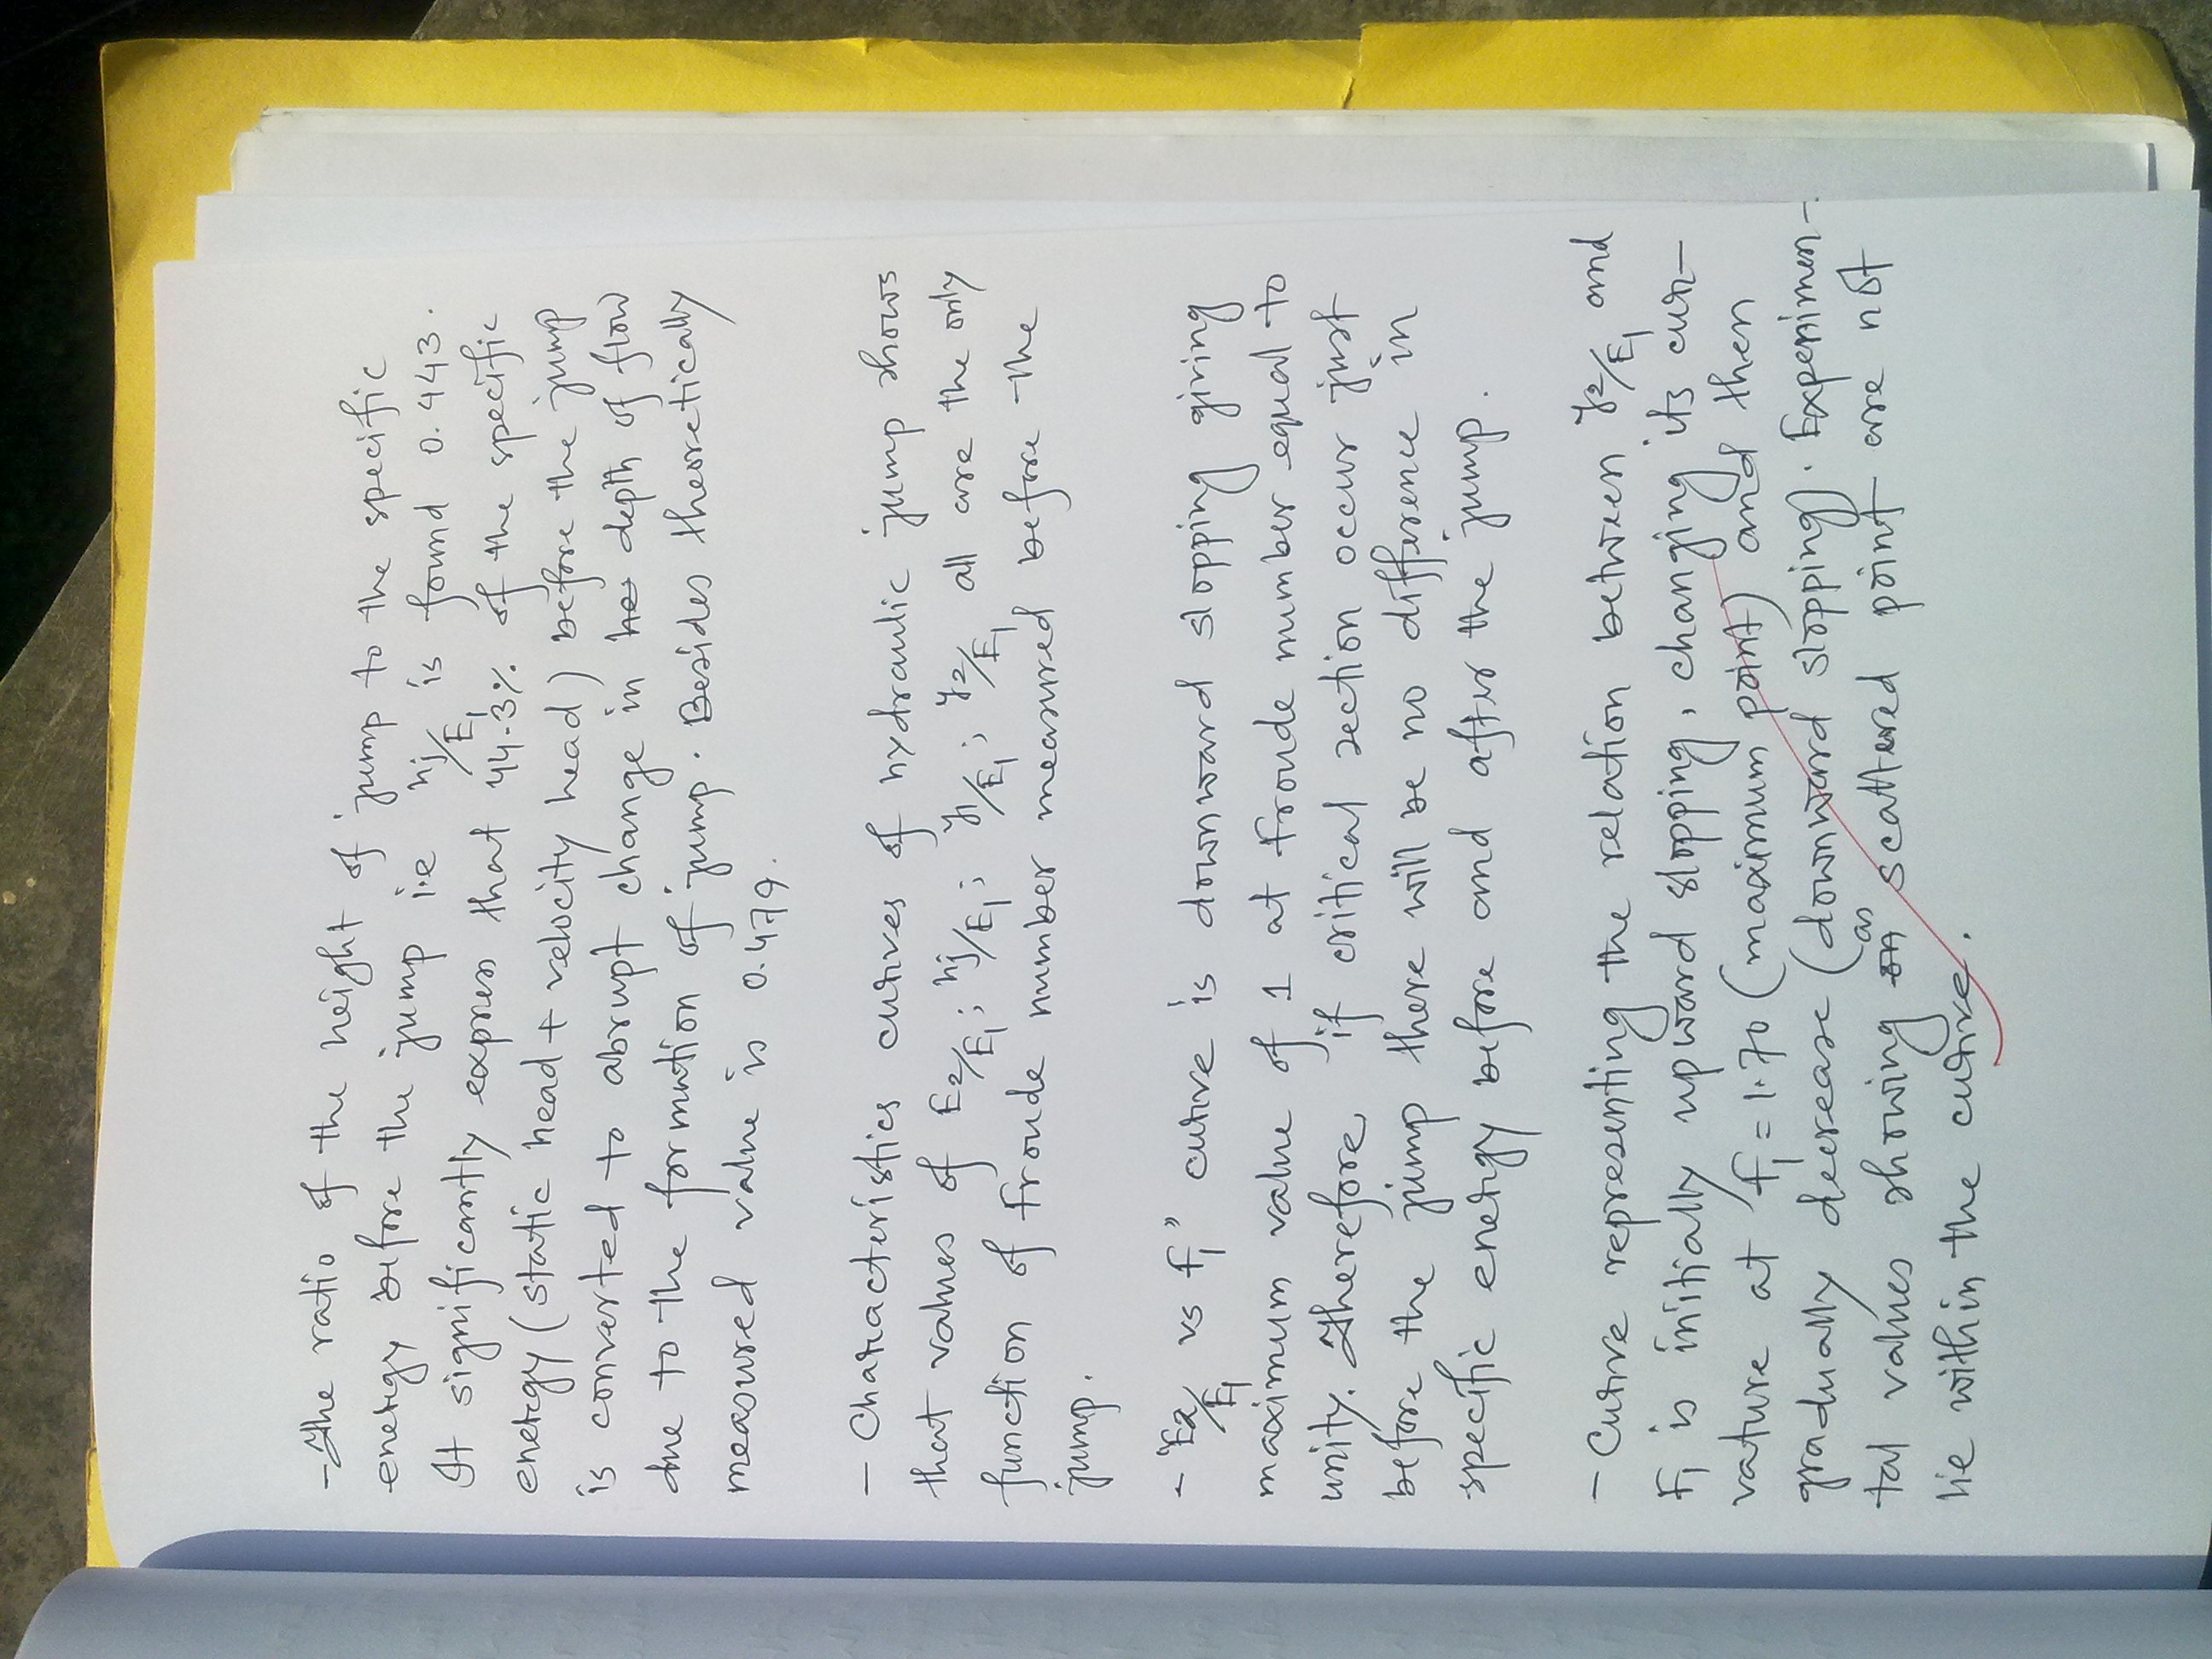 - The ratio of the height of jump to the specific
energy before the jump i.e hj/E1 is found 0.443.
It significantly express that 44.3% of the specific
energy (static head + velocity head) before the jump
is converted to abrupt change in he depth of flow
due to the formation of jump. Besides theoretically
measured value is 0.479.
- Characteristics curves of hydraulic jump shows
that values of E2/E1; hj/E1; y1/E1; y2/E1 all are the only
function of Froude number measured before the
jump.
- "E2/E1 vs F1" curve is downward slopping giving
maximum value of 1 at Froude number equal to
unity. Therefore, if critical section occur just
before the jump there will be no difference in
specific energy before and after the jump.
- Curve representing the relation between y2/E1 and
F1 is initially upward slopping, changing its cur-
vature at F1 = 1.70 (maximum point) and then
gradually decrease (downward slopping). Experimen-
tal values showing as scattered point are not
lie within the curve.